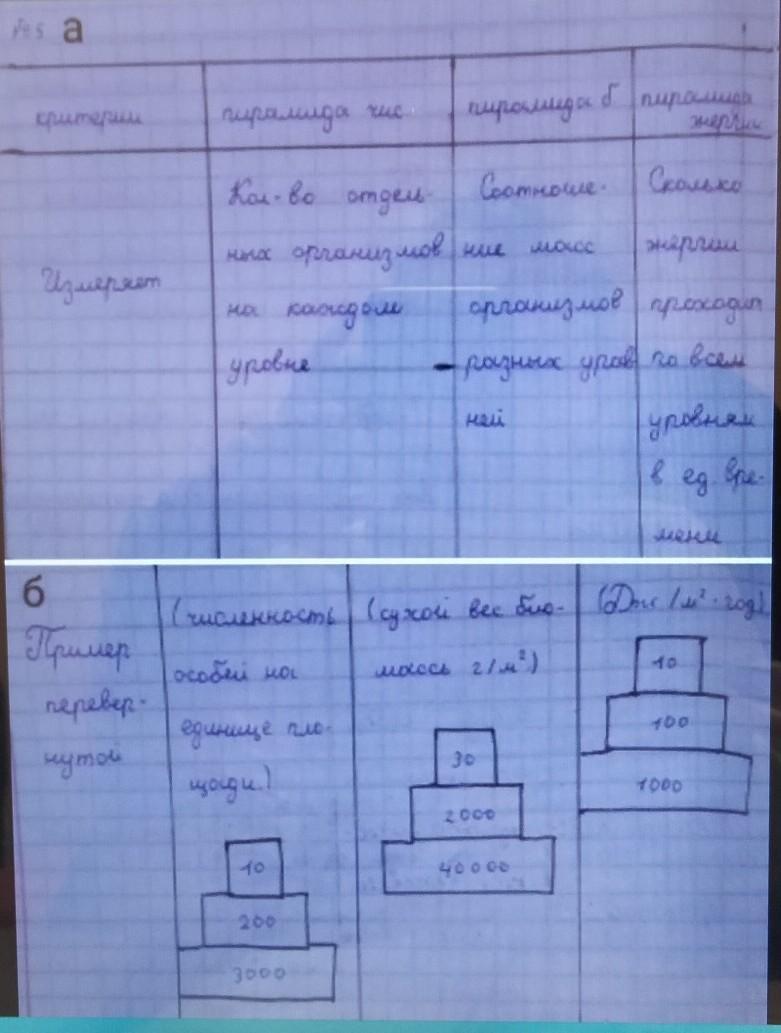 №5 а
критерии
пирамида чис.
пирамида б
пирамида
энергии
Измеряет
Кол-во отдель-
ных организмов
на каждом
уровне
Соотноше-
ние масс
организмов
разных уров
ней
Сколько
энергии
проходит
по всем
уровням
в ед. вре-
мени
б
Пример
перевер-
нутой
(численность
особей на
единице пло-
щади.)
10
200
3000
(сухой вес био-
массы г/м²)
30
2000
40000
(Дж/м²·год)
10
100
1000